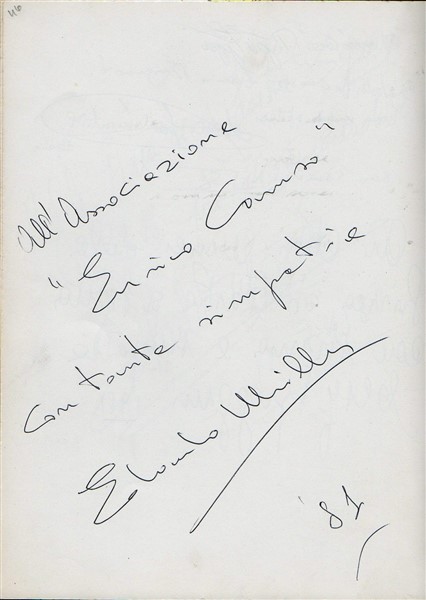 all'Associazione
"Enrico Caruso"
con tanta simpatia
Edoardo Müller
'81